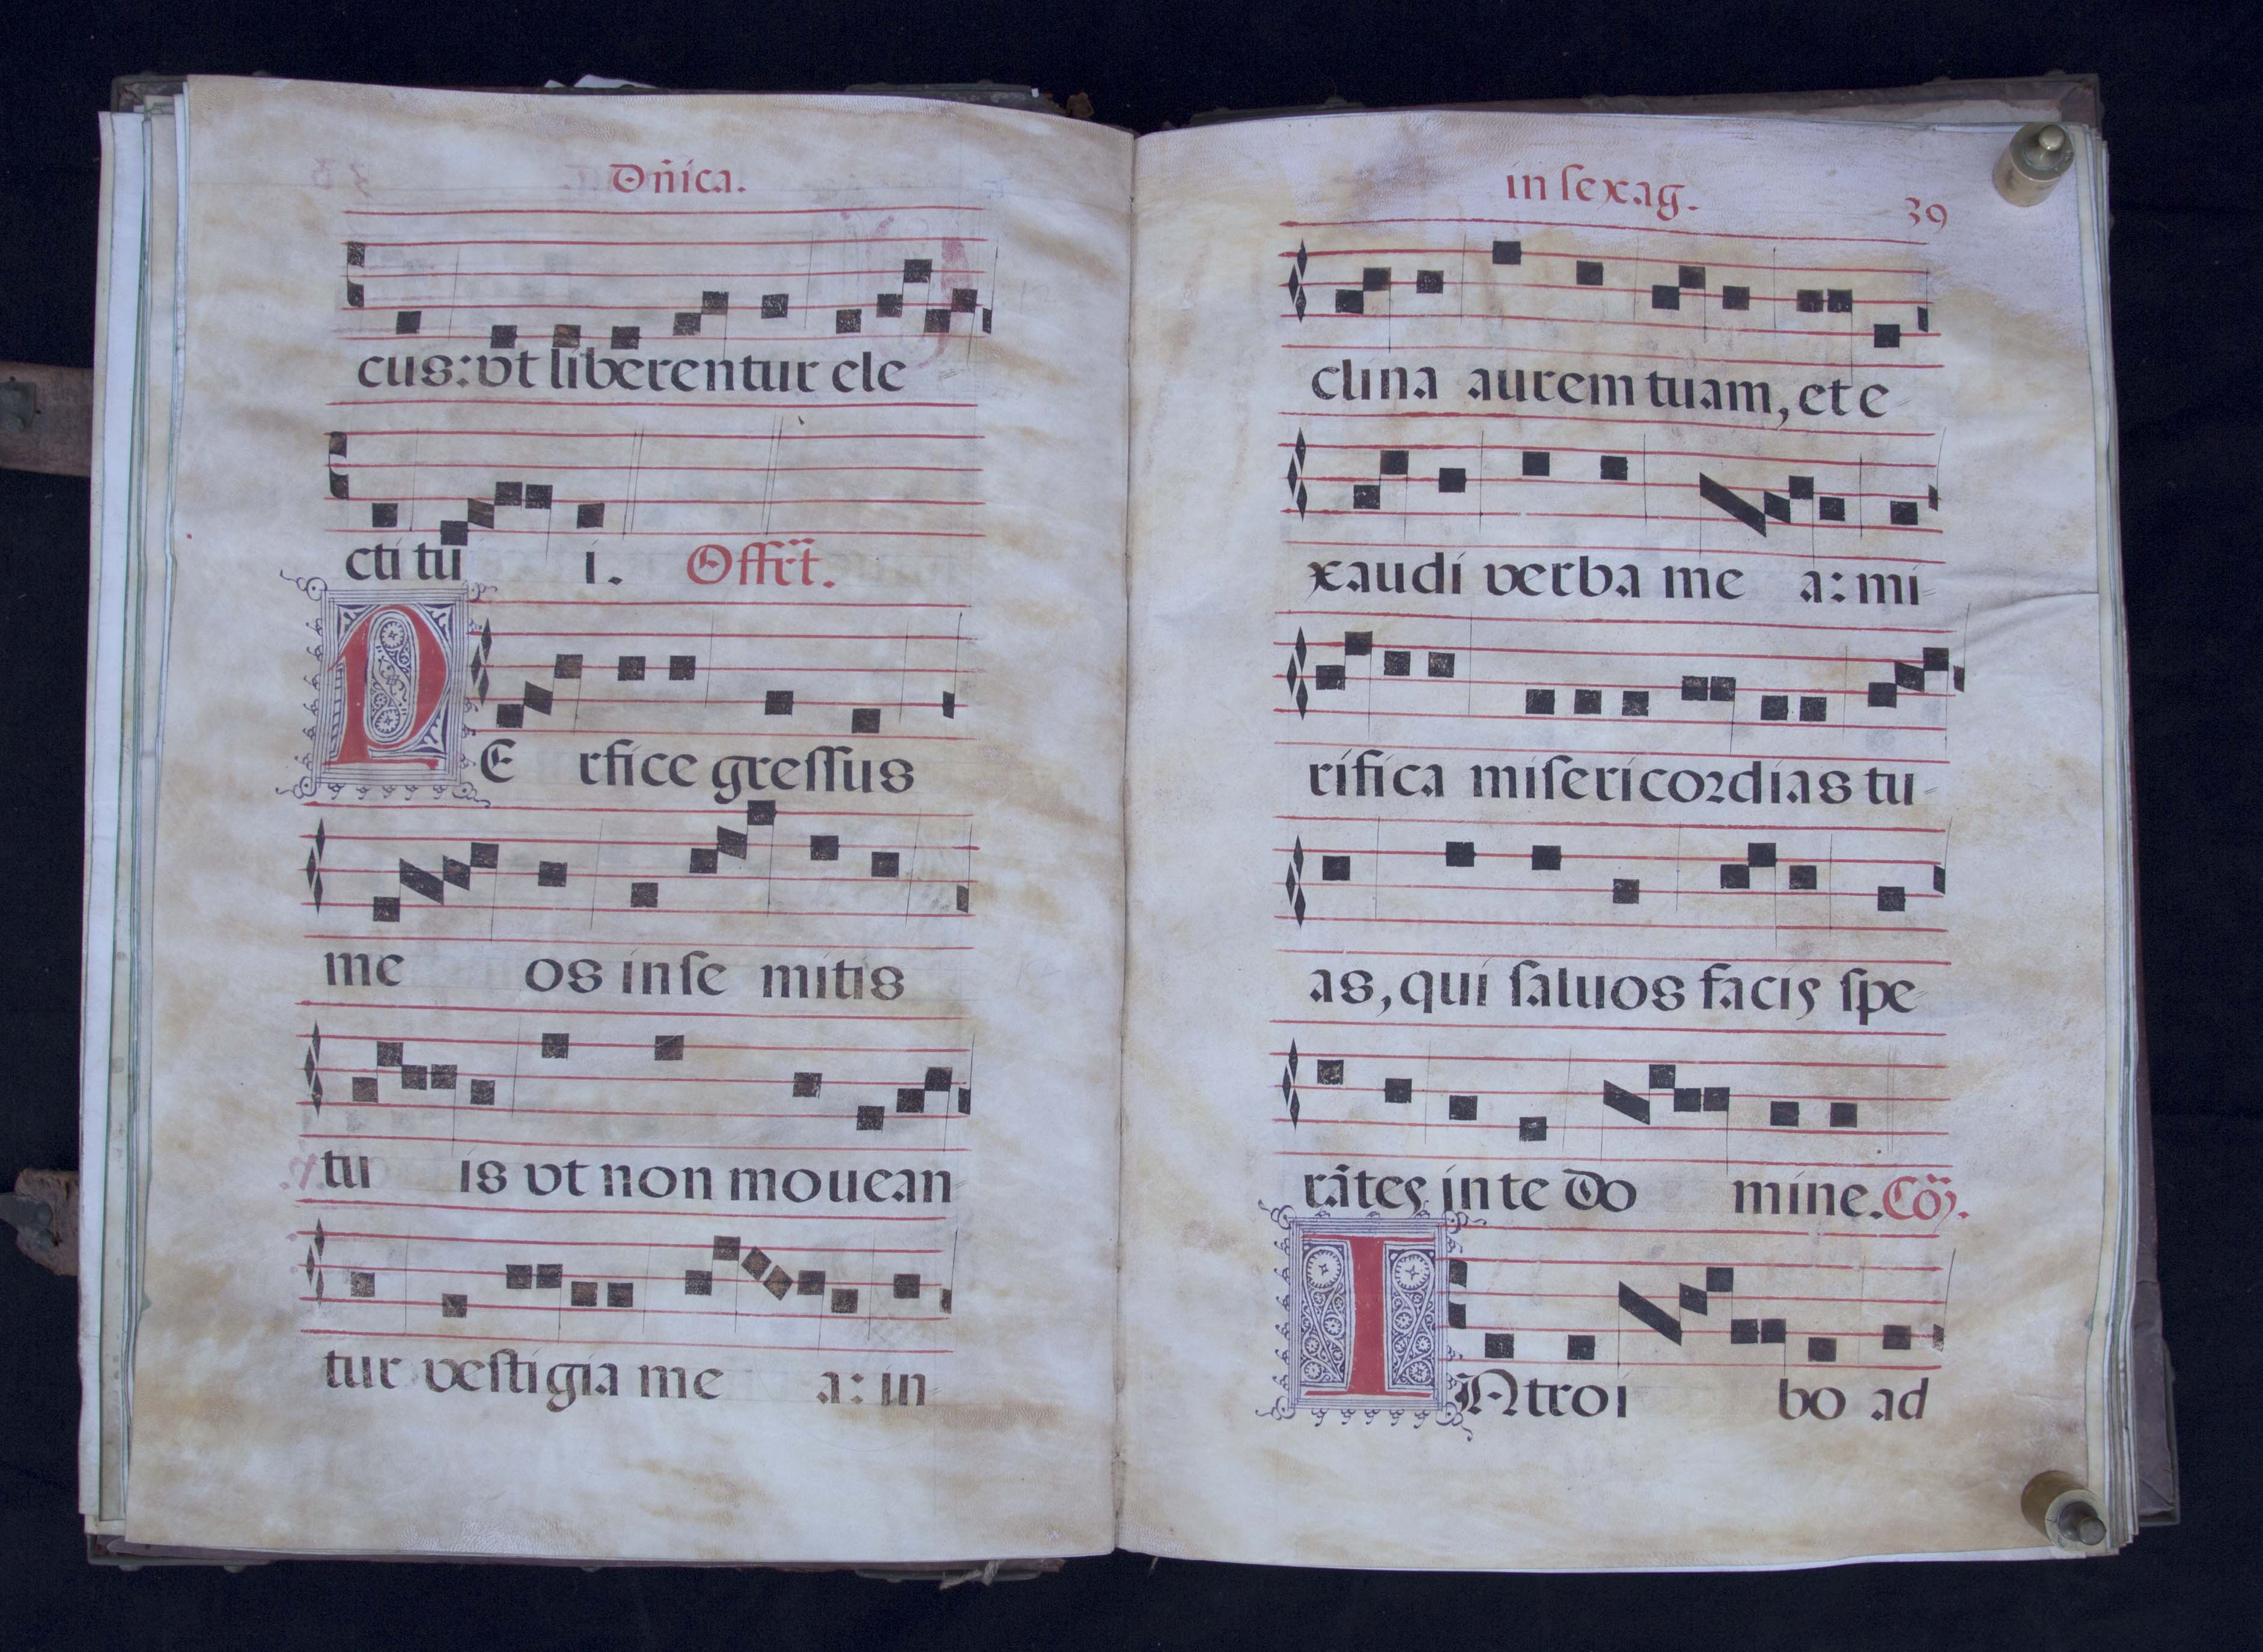 Dñica.
cus: vt liberentur ele
cti tu i. Offrt.
PE rfice gressus
me os in se mitis
tu is vt non mouean
tur vestigia me a: in
in sexag. 39
clina aurem tuam, et e
xaudi verba me a: mi
rifica misericordias tu
as, qui saluos facis spe
rãtes in te Do mine. Cõ.
INtroi bo ad